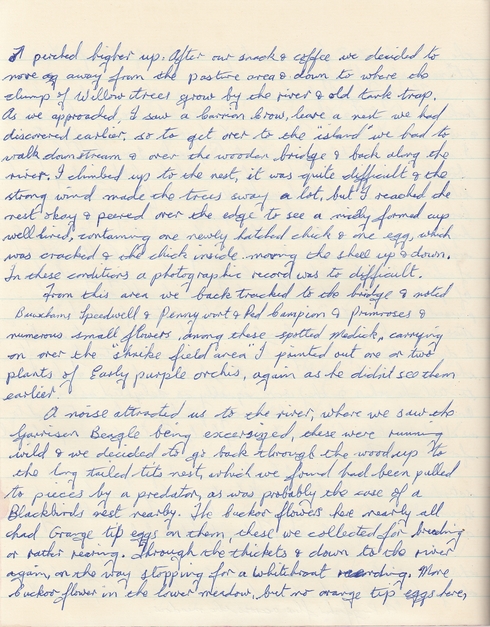 perched higher up. After our snack & coffee we decided to
move on away from the pasture area & down to where the
clump of Willow trees grow by the river & old tank trap.
As we approached, I saw a Carrion Crow, leave a nest we had
discovered earlier. so to get over to the "island" we had to
walk downstream & over the wooden bridge & back along the
river. I climbed up to the nest, it was quite difficult & the
strong wind made the trees sway a lot, but I reached the
nest okay & peered over the edge to see a nicely formed cup
well lined, containing one newly hatched chick & one egg, which
was cracked & the chick inside moving the shell up & down.
In these conditions a photographic record was to difficult.
From this area we back tracked to the bridge & noted
Buxhams Speedwell & Pennywort & Red Campion & Primroses &
numerous small flowers, among these spotted Medick, carrying
on over the "shrike field area" I pointed out one or two
plants of Early purple orchis, again as he didn't see them
earlier.
A noise attracted us to the river, where we saw the
Garrison Beagle being excersized, these were running
wild & we decided to go back through the wood up to
the long tailed tits nest, which we found had been pulled
to pieces by a predator, as was probably the case of a
Blackbirds nest nearby. The cuckoo flowers here nearly all
had Orange tip eggs on them, these we collected for breeding
or rather rearing. Through the thickets & down to the river
again, on the way stopping for a Whitethroat recording. More
cuckoo flower in the lower meadow, but no orange tip eggs here,